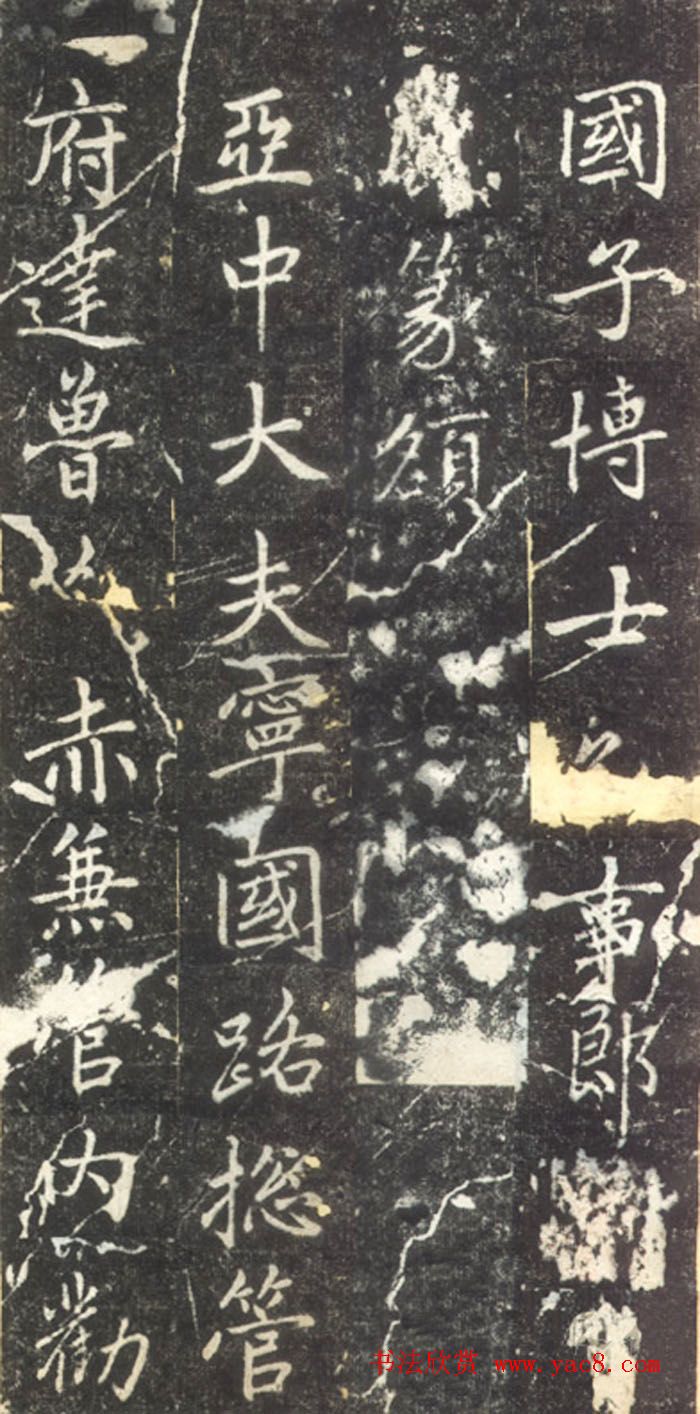 國子博士事郎
篆額
亞中大夫寧國路摠管
府達魯赤兼管内勸
书法欣赏 www.yac8.com